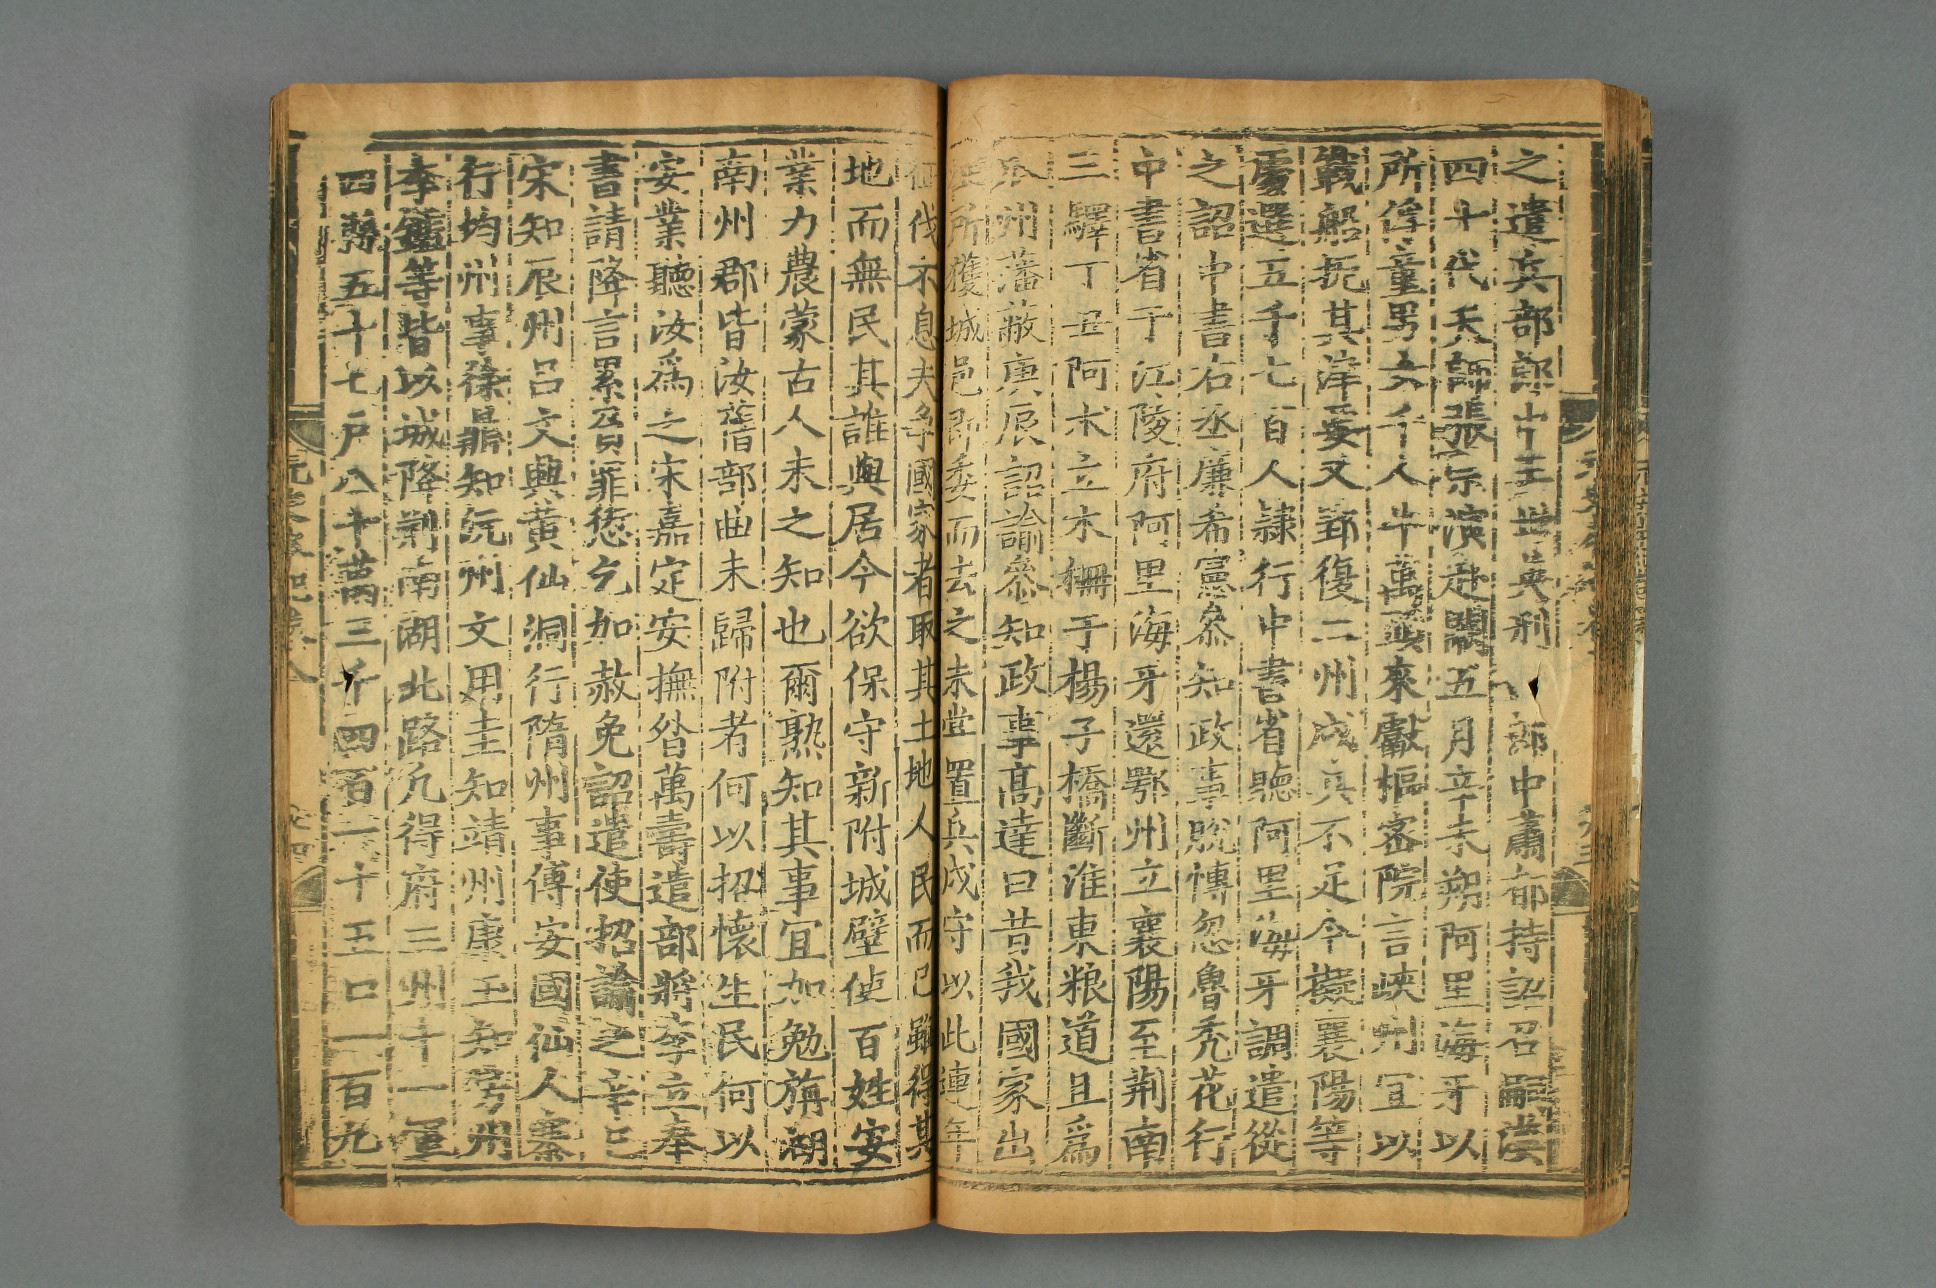 之遣兵部郎中王世英刑部郎中蕭郁持詔召嗣漢
四十代天師張宗演赴闕五月辛未朔阿里海牙以
所俘童男女千人牛萬頭來獻樞密院言峽州宜以
戰船扼其津要又郢復二州戍兵不足今擬襄陽等
處選五千七百人隷行中書省聽阿里海牙調遣從
之詔中書右丞廉希憲參知政事脫博忽魯禿花行
中書省于江陵府阿里海牙還鄂州立襄陽至荆南
三驛丁丑阿朮立木柵于楊子橋斷淮東粮道且爲
州藩蔽庚辰詔諭參知政事高達曰昔我國家出
征所獲城邑即委而去之未嘗置兵戍守以此連年
征伐不息夫爭國家者取其土地人民而已雖得其
地而無民其誰與居今欲保守新附城壁使百姓安
業力農蒙古人未之知也爾熟知其事宜加勉旃湖
南州郡皆汝舊部曲未歸附者何以招懷生民何以
安業聽汝爲之宋嘉定安撫昝萬壽遣部將李立奉
書請降言累負罪愆乞加赦免詔遣使招諭之辛巳
宋知辰州吕文興黃仙洞行隋州事傅安國仙人寨
行均州事徐鼎知沅州文用圭知靖州康玉知房州
李鑑等皆以城降荆南湖北路凡得府三州十一軍
四縣五十七户八十萬三千四百一十五口一百九
元史本紀卷八